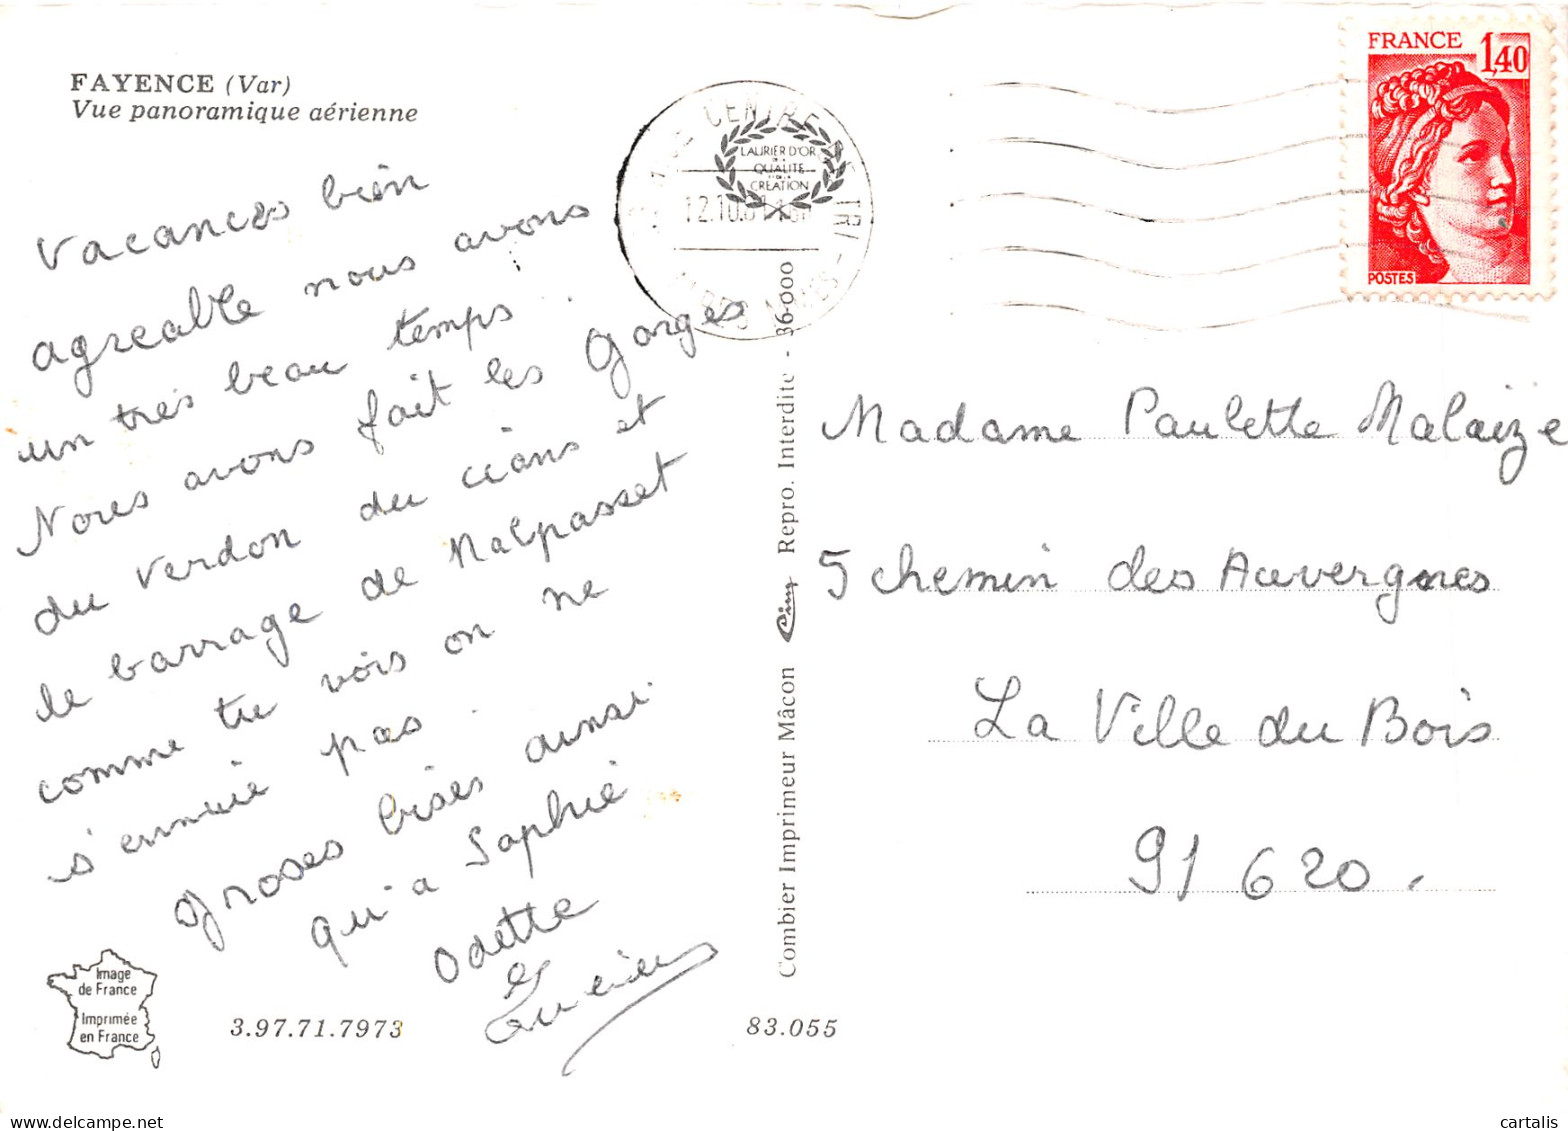 FAYENCE (Var)
Vue panoramique aérienne
Vacances bien
agreable nous avons
un très beau temps.
Nous avons fait les Gorges
du Verdon du cians et
le barrage de Malpasset
comme tu vois on ne
s'ennuie pas.
Groses bises ainsi
qu'a Sophie
Odette
et
Lucien
Image
de France
Imprimée
en France
3.97.71.7973
83.055
CENTRE TRI
LAURIER D'OR
DE LA
QUALITE
ET DE LA
CREATION
12.10.81
Combier Imprimeur Mâcon Cim Repro. Interdite - 36-000
FRANCE 1,40
POSTES
Madame Paulette Malaize
5 chemin des Auvergnes
La Ville du Bois
91 620.
cartalis